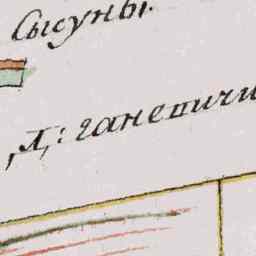 Сысуны.
Д: ганевичи